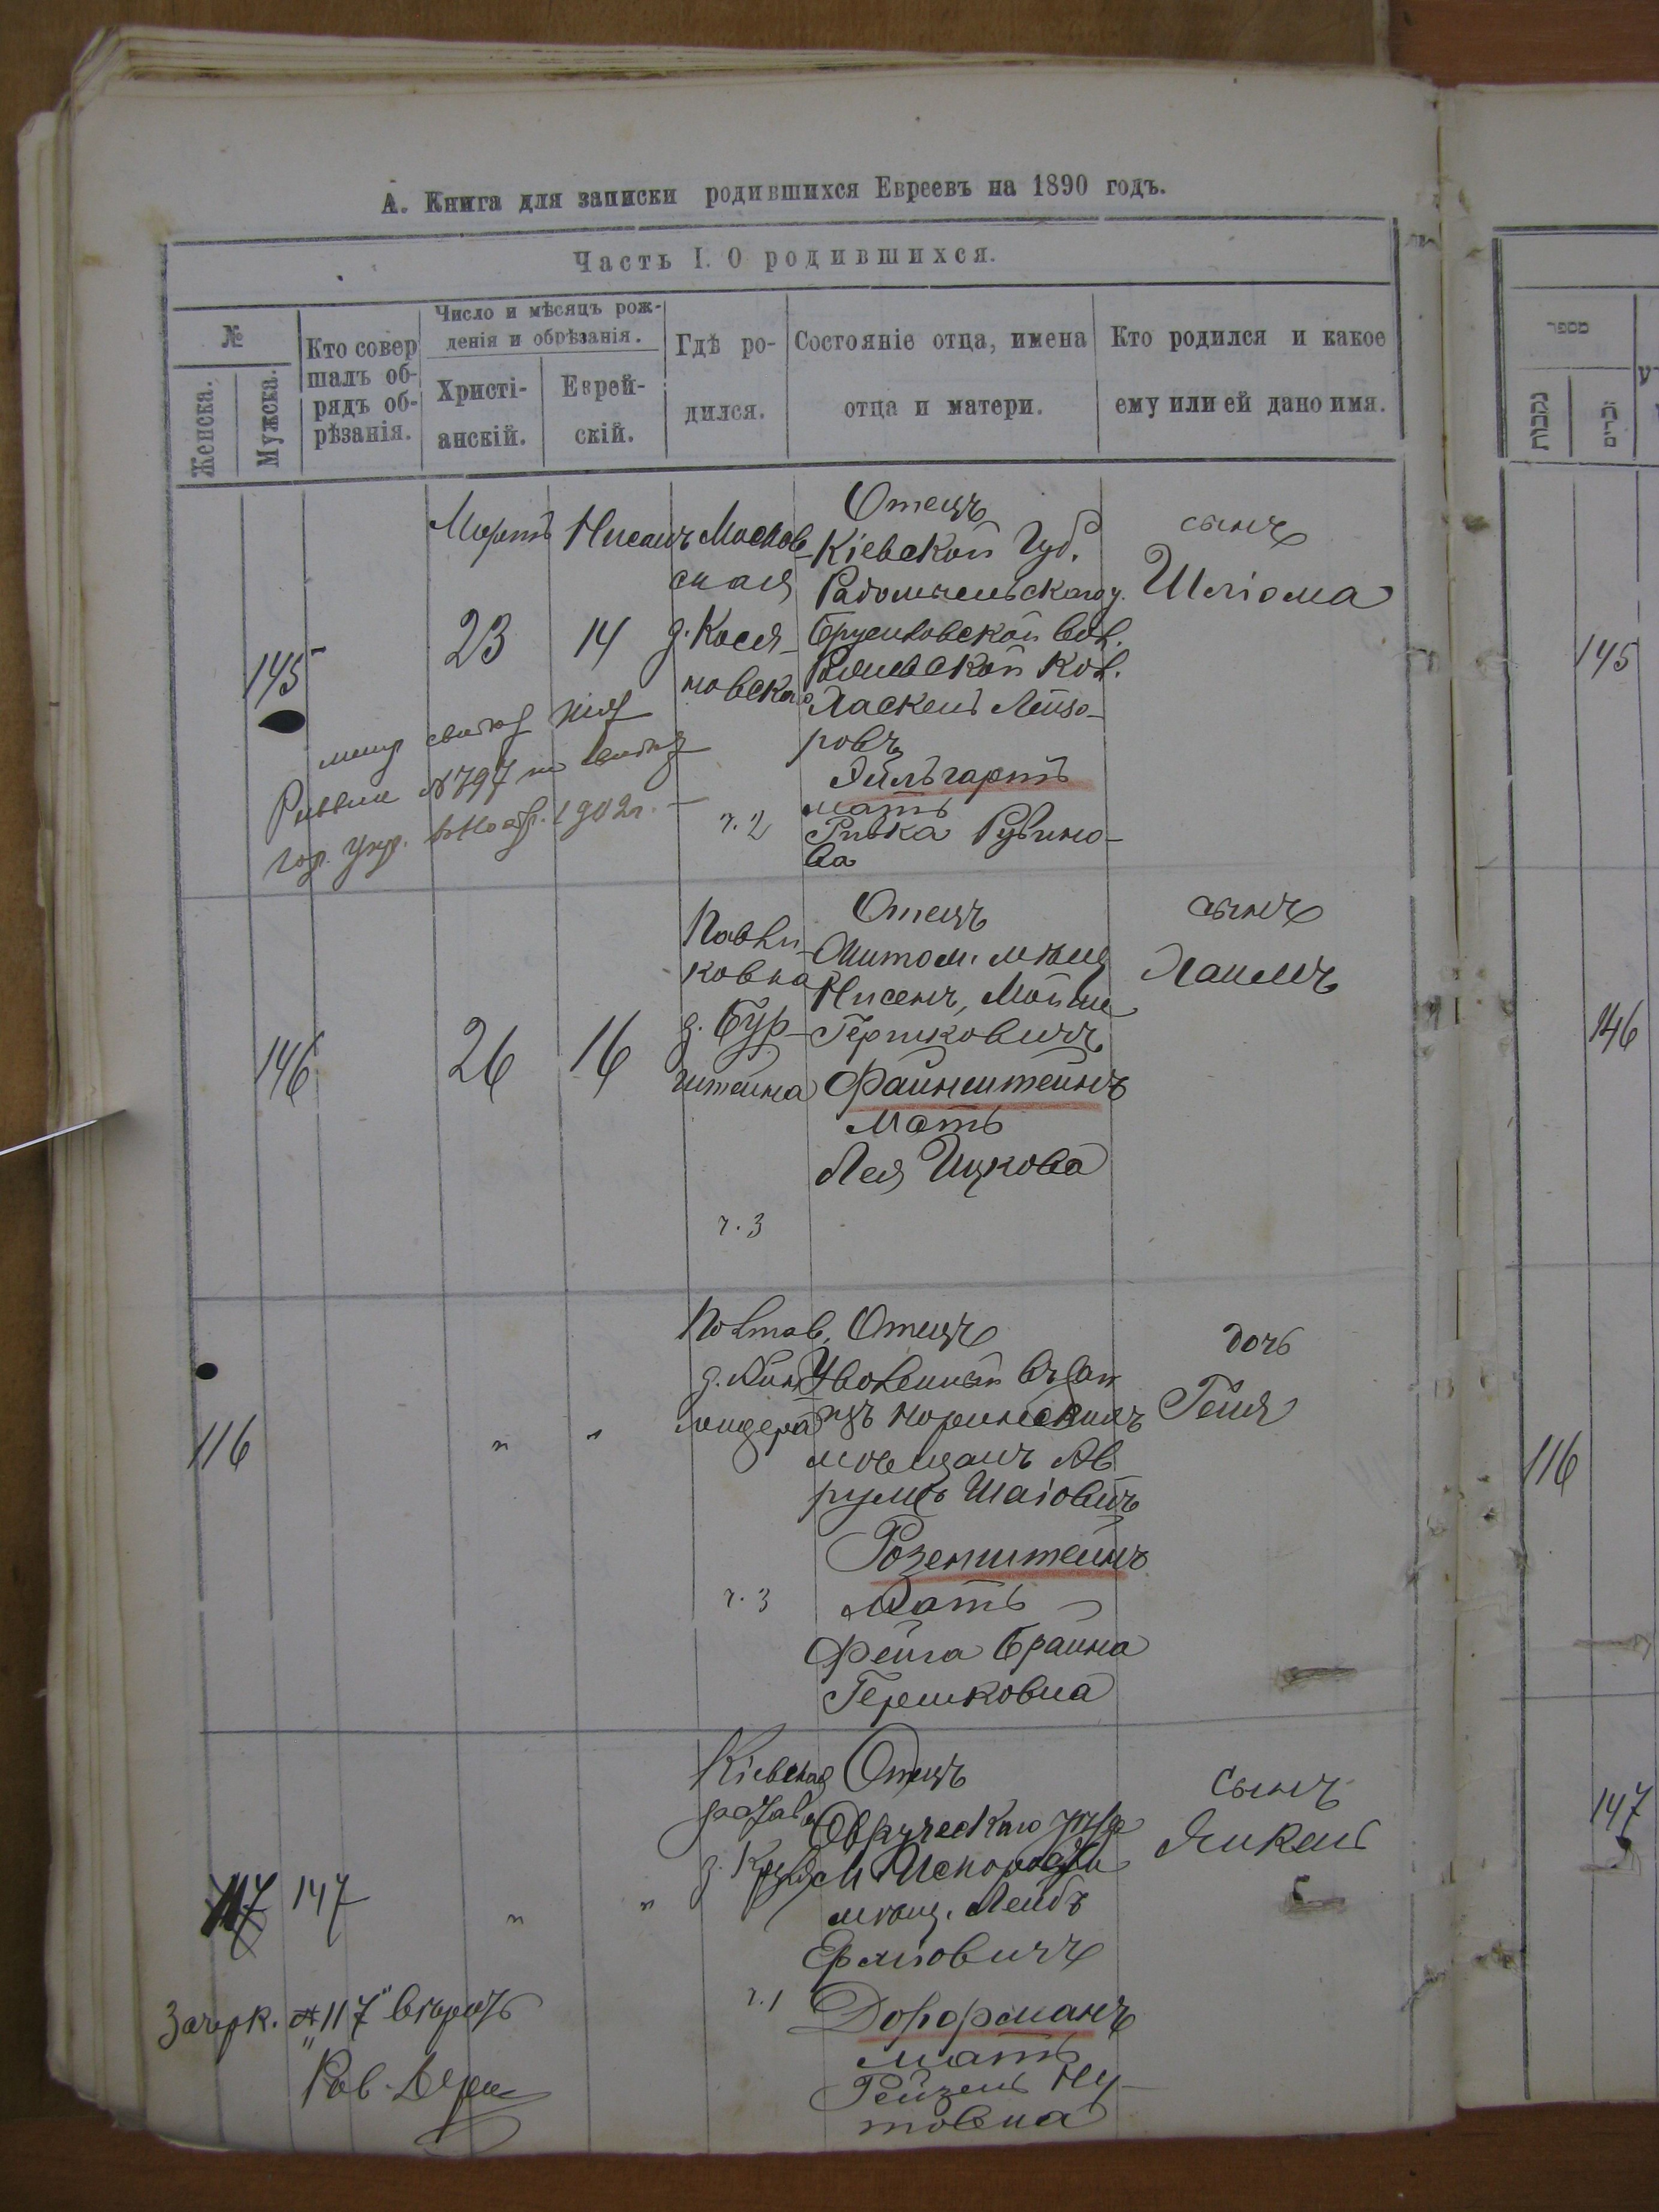 А. Книга для записки родившихся Евреевъ на 1890 годъ.
Часть I. О родившихся.
№
Женска.
Мужска.
Кто совер
шалъ об-
рядъ об-
рѣзанія.
Число и мѣсяцъ рож-
денія и обрѣзанія.
Христі-
анскій.
Еврей-
скій.
Гдѣ ро-
дился.
Состояніе отца, имена
отца и матери.
Кто родился и какое
ему или ей дано имя.
145
Мартъ
23
Нисанъ
14
Москов
ская
д. Кося-
новскаго
ч. 2
Отецъ
Кіевской Губ.
Радомысльскаго у.
Брусиловской вол.
кол.
Хаскель Лейзо-
ровъ
Гильгартъ
мать
Ривка Рувино-
ва
сынъ
Шліома
№ 797
1902 г.
146
26
16
Павли
ковка
д. Бур-
штейна
ч. 3
Отецъ
Житом. мѣщ
Нисенъ, Мойше
Гершковичъ
Файнштейнъ
Мать
Лея Ицкова
сынъ
Хаимъ
116
"
"
Полтав.
д.
ч. 3
Отецъ
Уволенный въ зап
изъ Норинскихъ
мѣщанъ Ав
румъ Шаіовичъ
Розенштейнъ
Мать
Фейга Браина
Гершковна
дочь
Гения
117 147
"
"
Кіевская
ч. 1
Отецъ
Овручскаго уѣзда
М. Искорость
мѣщ. Лейбъ
Дорфманъ
мать
Рейзель Ну-
товна
сынъ
Янкель
Зачерк. 117 вѣрить
Рав.
מספר
נקבות
זכרים
145
146
116
147